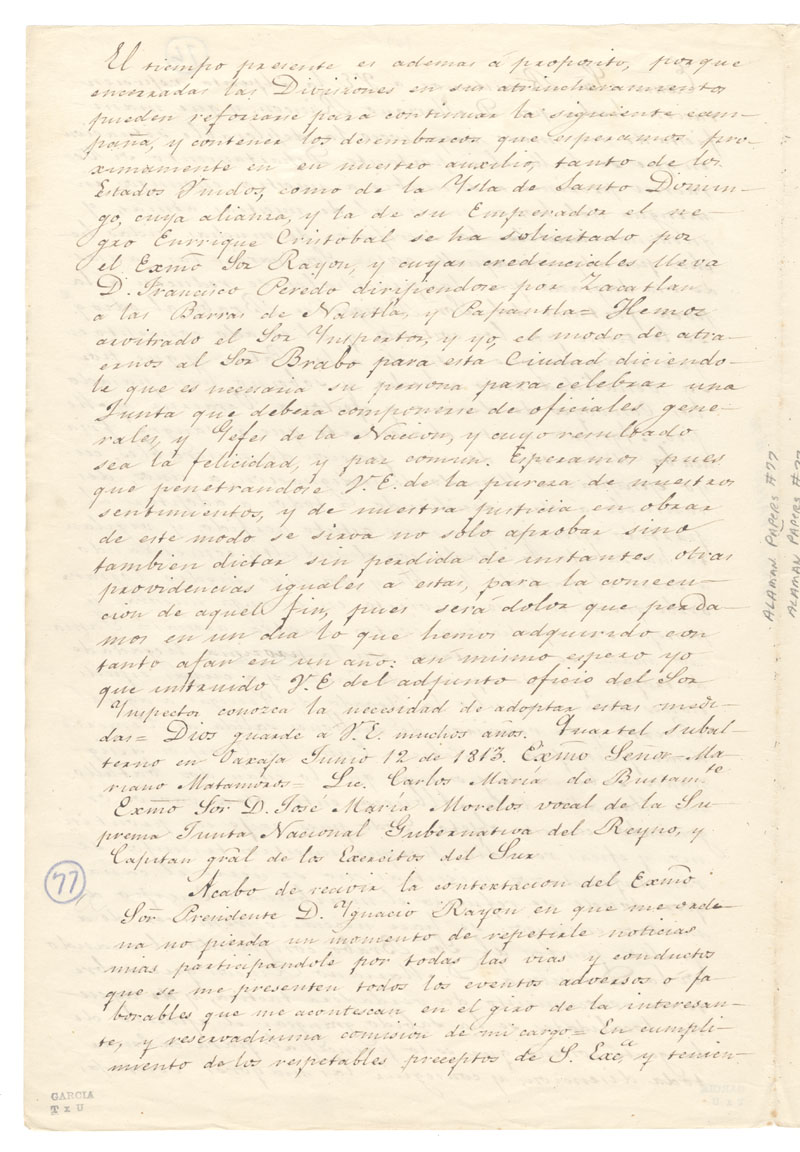 El tiempo presente es ademas á proposito, porque
encerradas las Divisiones en sus atrincheramientos
pueden reforzarse para continuar la siguiente cam-
paña, y contener los desembarcos que esperamos pro-
ximamente en en nuestro auxilio, tanto de los
Estados Unidos, como de la Ysla de Santo Domin-
go, cuya alianza, y la de su Emperador el ne-
gro Enrrique Cristobal se ha solicitado por
el Exmō Sor Rayon, y cuyas credenciales lleva
D. Francisco Peredo dirijiendose por Zacatlan
á las Barras de Nautla, y Papantla= Hemos
arvitrado el Sor Ynspector, y yo, el modo de atra-
ernos al Sor̄ Brabo para esta Ciudad diciendo-
le que es necesaria su persona para celebrar una
Junta que deberá componerse de oficiales gene-
rales, y Gefes de la Nacion, y cuyo resultado
sea la felicidad, y paz comun. Esperamos pues
que penetrandose V.E. de la pureza de nuestros
sentimientos, y de nuestra justicia en obrar
de este modo se sirva no solo aprobar sino
tambien dictar sin perdida de instantes otras
providencias iguales á estas, para la consecu-
cion de aquel fin, pues será dolor que perda-
mos en un dia lo que hemos adquirido con
tanto afan en un año: asi mismo espero yo
que instruido V.E del adjunto oficio del Sor
Ynspector conozca la necesidad de adoptar estas medi-
das= Dios guarde á V.E. muchos años. Quartel subal-
terno en Oaxaja Junio 12 de 1813. Exmō Señor= Ma-
riano Matamoros= Lic. Carlos María de Bustamte
Exmō Sor̄ D. José María Morelos vocal de la Su-
prema Junta Nacional Gubernativa del Reyno, y
Capitan grāl de los Exercitos del Sur
77
Acabo de recivir la contextacion del Exmō
Sor̄ Presidente D. Ygnacio Rayon en que me orde-
na no pierda un momento de repetirle noticias
mias participandole por todas las vias y conductos
que se me presenten todos los eventos adversos o fa-
borables que me acontescan en el giro de la interesan-
te, y reservadisima comisión de mi cargo= En cumpli-
miento de los respetables preceptos de S. Exca y tenien-
GARCIA
T x U
ALAMAN PAPERS #77
ALAMAN PAPERS #77